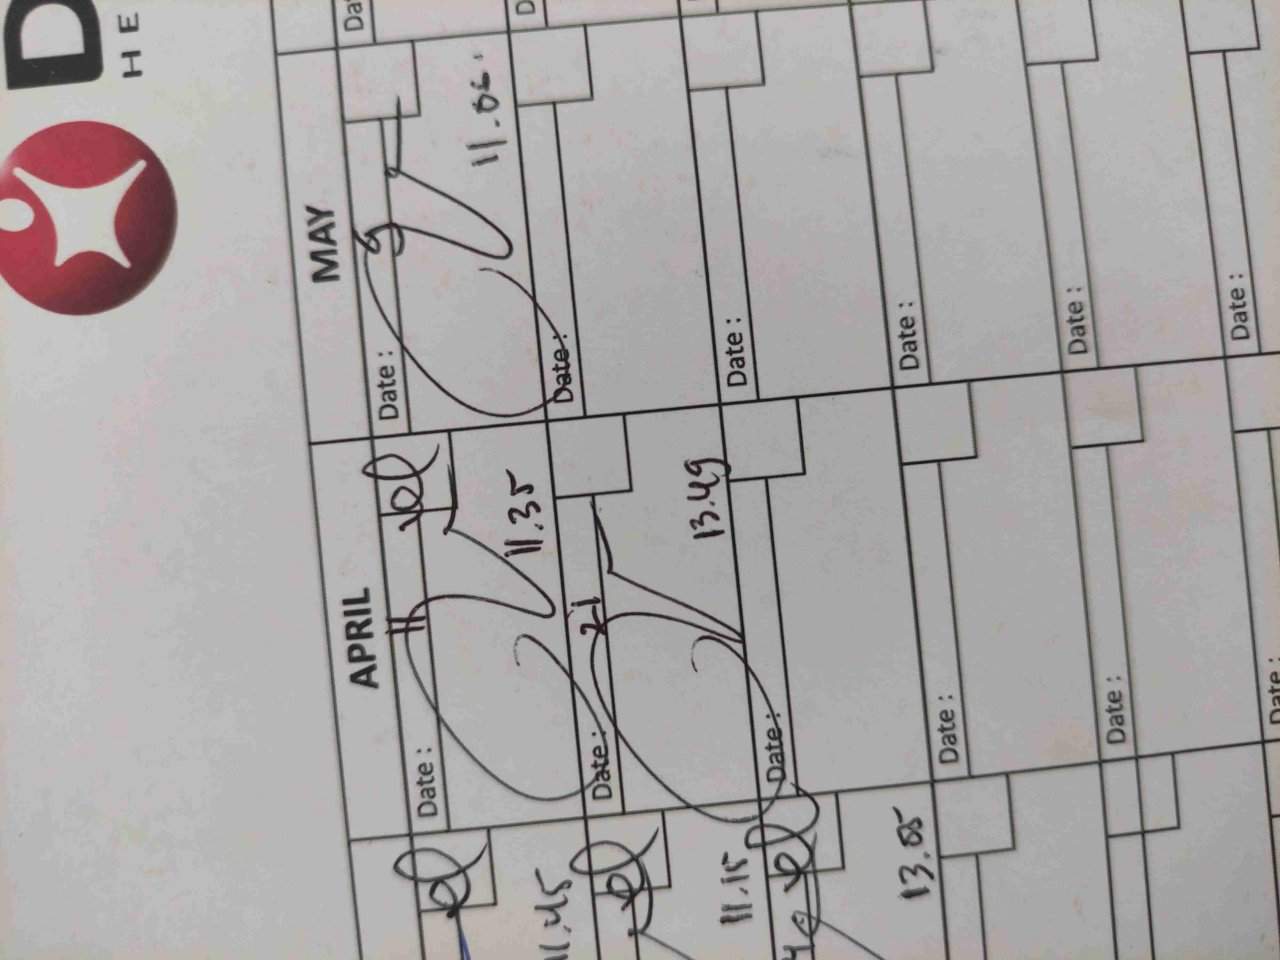 D
HE
APRIL MAY
Date: 11 Date: 9 Da
11.45 11.35 11.06.
Date: 21 Date: D
11.15 13.49
Date: Date:
13.05
Date: Date:
Date: Date:
Date: Date: